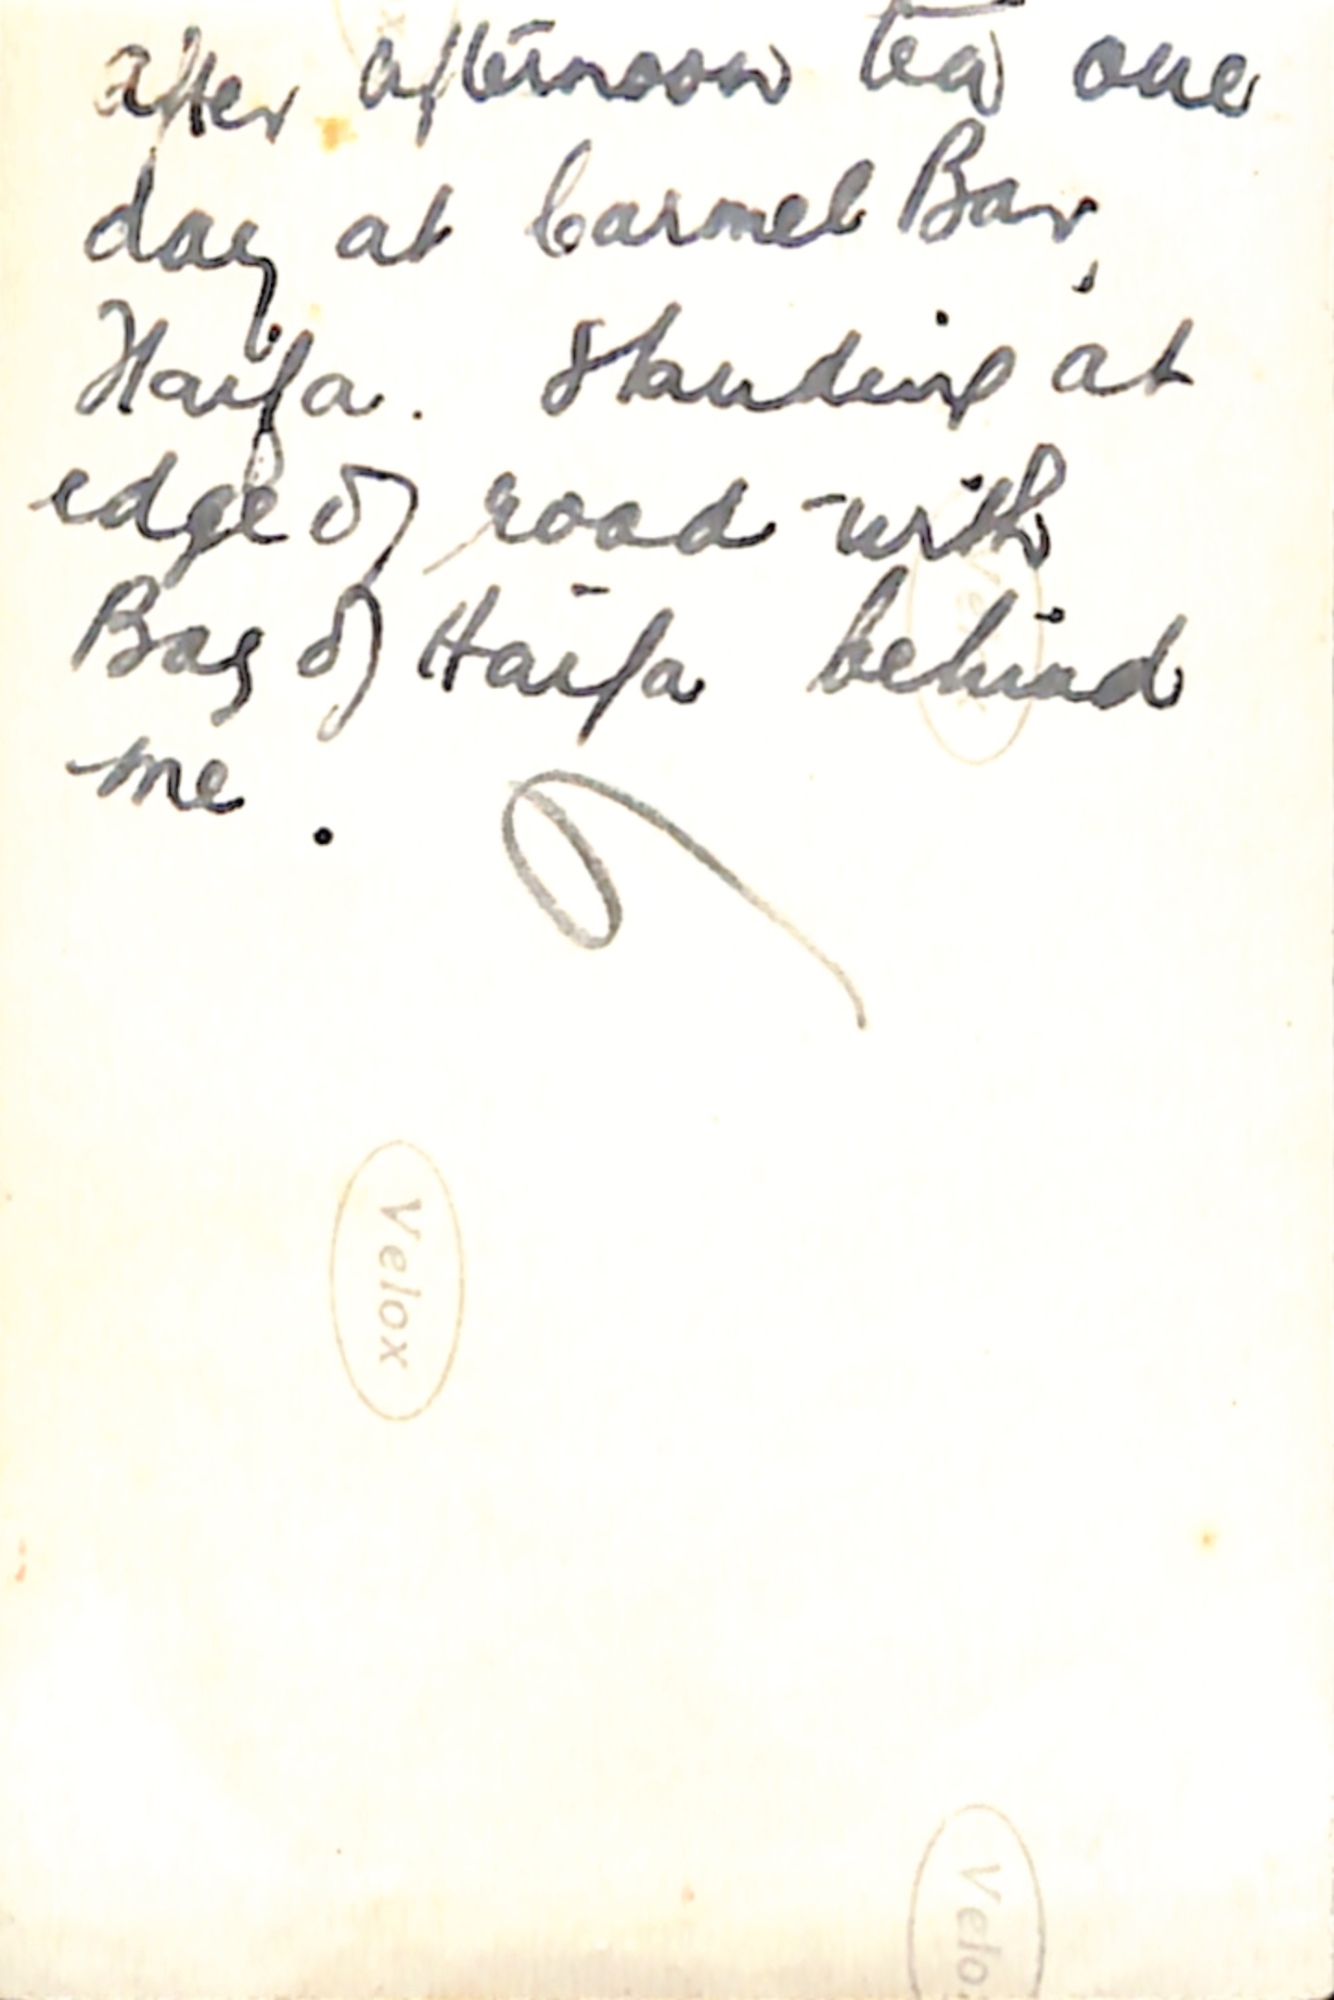 after afternoon tea one
day at Carmel Bar,
Haifa. Standing at
edge of road with
Bay of Haifa behind
me.
Velox
Velox
Velox